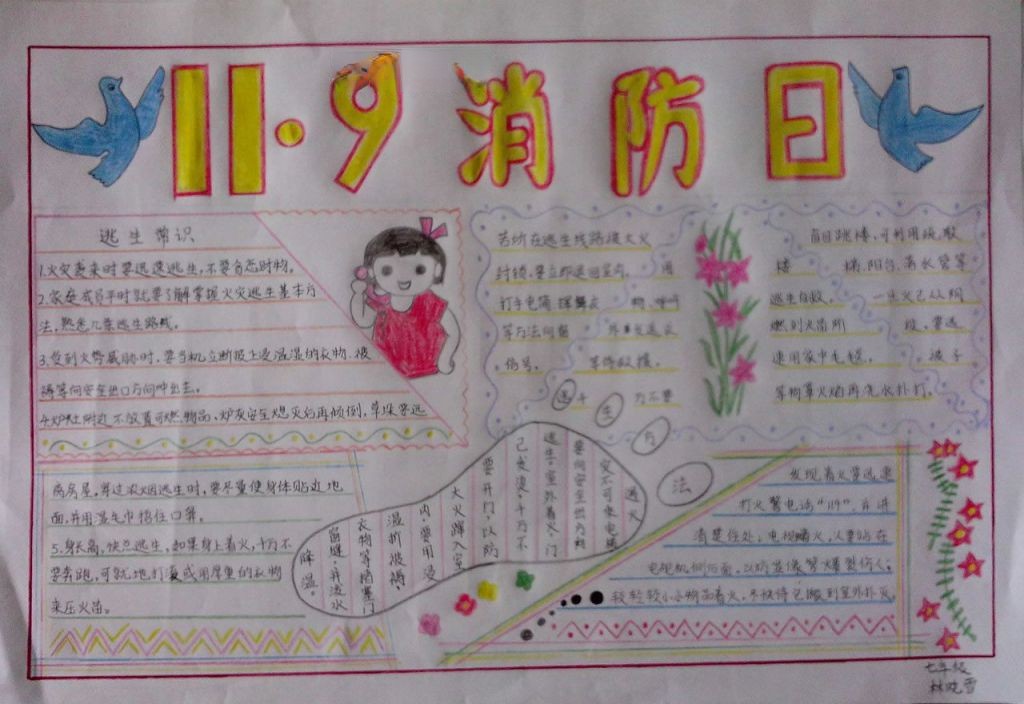 11·9 消防日
逃生常识
1.火灾袭来时要迅速逃生,不要贪恋财物。
2.家庭成员平时就要了解掌握火灾逃生基本方
法,熟悉几条逃生路线。
3.受到火势威胁时,要当机立断披上浸湿的衣物、被
褥等向安全出口方向冲出去。
4.炉灶附近不放置可燃物品、炉灰安全熄灭后再倾倒,草垛要远
离房屋,穿过浓烟逃生时,要尽量使身体贴近地
面,并用湿毛巾捂住口鼻。
5.身长高,快点逃生,如果身上着火,千万不
要奔跑,可就地打滚或用厚重的衣物
来压火苗。
若所在逃生线路被大火
封锁,要立即退回室内,用
打手电筒
等方法向窗
信号,等待救援。
千万不要
盲目跳楼,可利用疏散
楼梯,阳台、落水管等
逃生自救。
燃
速用家中毛毯、被子
等物罩火焰再洗水扑灯。
逃生方法
遇火
灾不可乘电梯
要向安全出口方向
逃生。室外着火,门
已发烫,千万不
要开门,以防
大火蹿入室
内,要用浸
湿的被褥、
衣物等堵塞门
窗缝,并泼水
降温。
发现着火要迅速
打火警电话“119”,
清楚住处,电视着火,人要站在
电视机侧后面,以防显像管爆裂伤人,
较轻较小小物品着火,尽快将它搬到室外扑灭。
七年级
林晓雪